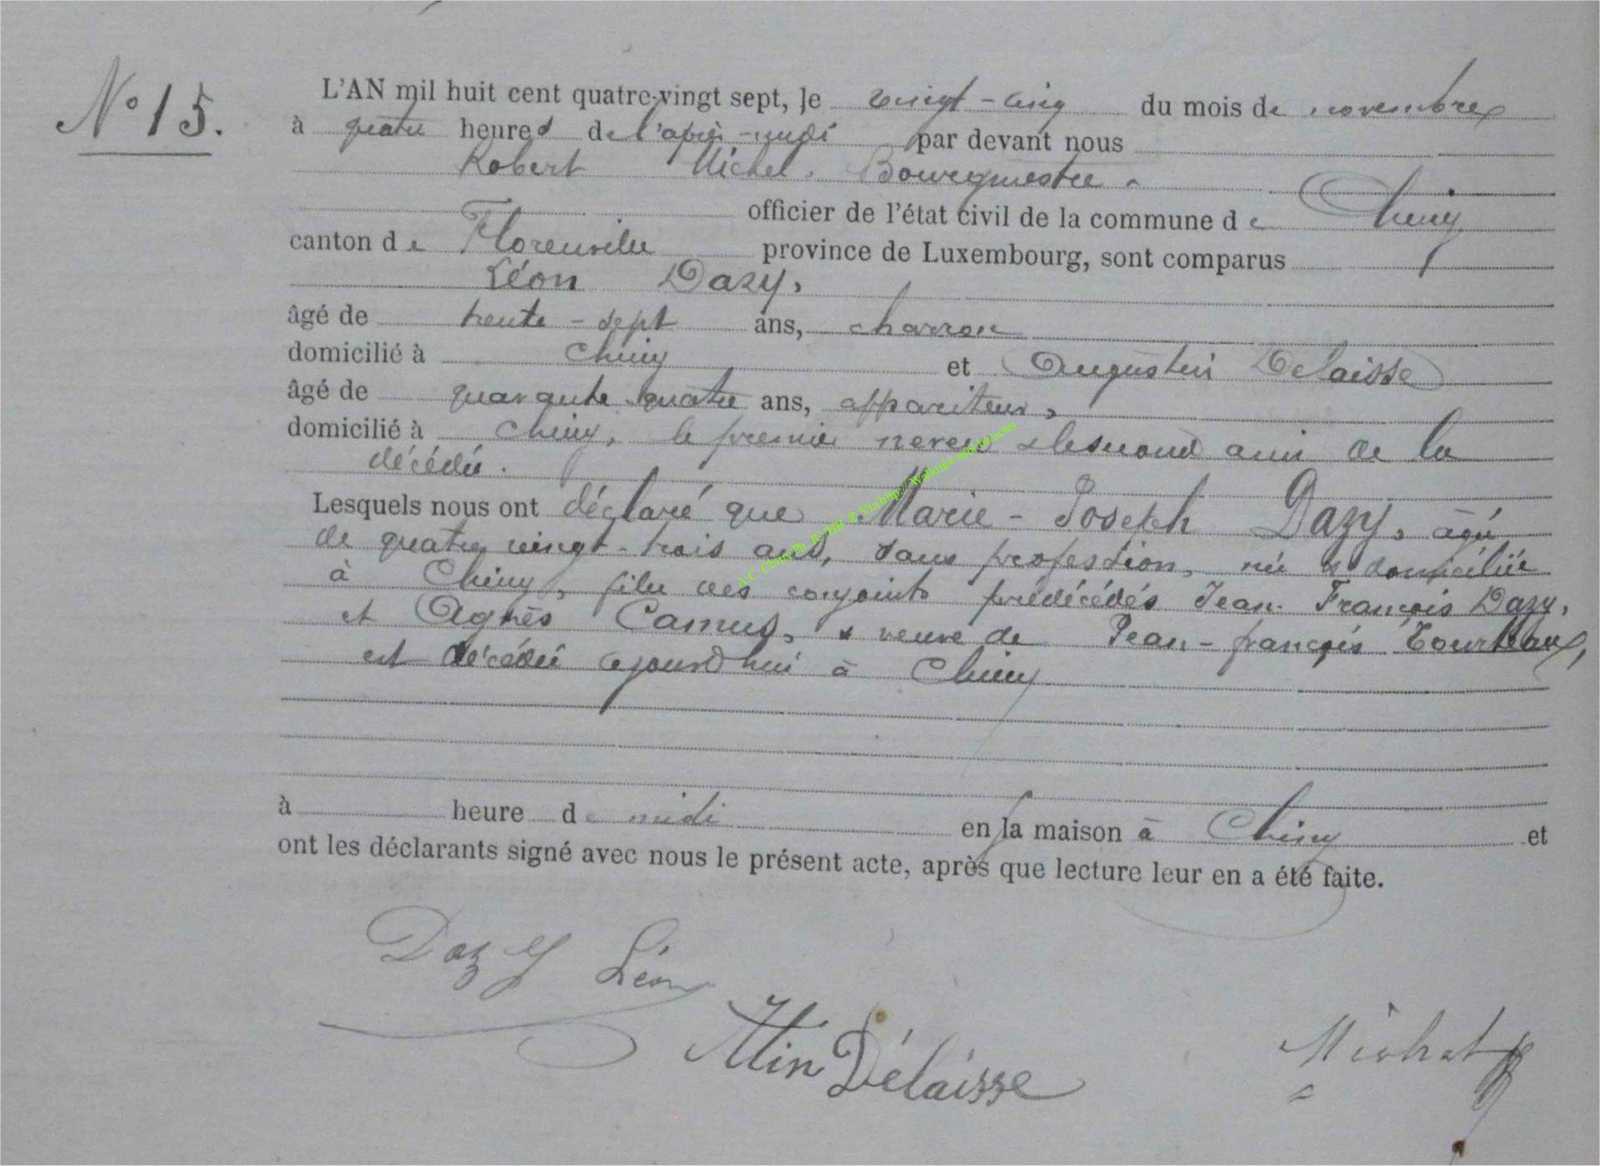 N° 15.
L'AN mil huit cent quatre-vingt sept, le vingt-cinq du mois de novembre
à quatre heures de l'après-midi par devant nous
Robert Michel, Bourgmestre
officier de l'état civil de la commune de Chiny
canton de Florenville province de Luxembourg, sont comparus
Léon Dazy,
âgé de trente-sept ans, charron
domicilié à Chiny et Augustin Delaisse
âgé de quarante quatre ans, appariteur,
domicilié à Chiny, le premier neveu & le second ami de la
décédée.
Lesquels nous ont déclaré que Marie-Joseph Dazy, âgée
de quatre vingt-trois ans, sans profession, née & domiciliée
à Chiny, fille des conjoints prédécédés Jean-François Dazy,
et Agnès Camus, & veuve de Jean-françois Tourteaux,
est décédée aujourd'hui à Chiny
à heure de midi en la maison à Chiny et
ont les déclarants signé avec nous le présent acte, après que lecture leur en a été faite.
Dazy Léon
Atin Délaisse